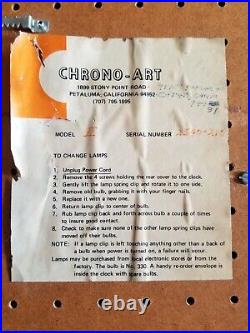 CHRONO-ART
1800 STONY POINT ROAD
PETALUMA, CALIFORNIA 94952
(707) 795 1895
MODEL II SERIAL NUMBER
TO CHANGE LAMPS
1. Unplug Power Cord
2. Remove the 4 screws holding the rear cover to the clock.
3. Gently lift the lamp spring clip and rotate it to one side.
4. Remove old bulb, grabbing it with your finger nails.
5. Replace it with a new one.
6. Return lamp clip to center of bulb.
7. Rub lamp clip back and forth across bulb a couple of times
to insure good contact.
8. Check to make sure none of the other lamp spring clips have
moved off their bulbs.
NOTE: If a lamp clip is left touching anything other than a back of
a bulb when power is turned on, a failure will occur.
Lamps may be purchased from local electronic stores or from the
factory. The bulb is No. 330. A handy re-order envelope is
inside the clock with spare bulbs.